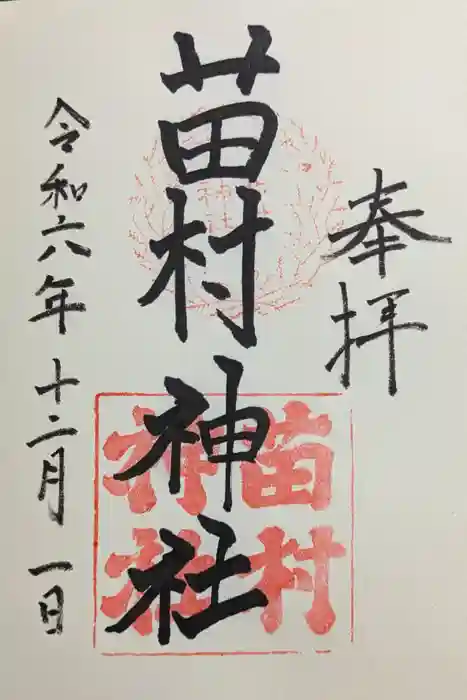 奉拝
苗村神社
苗村
神社
令和六年十二月一日